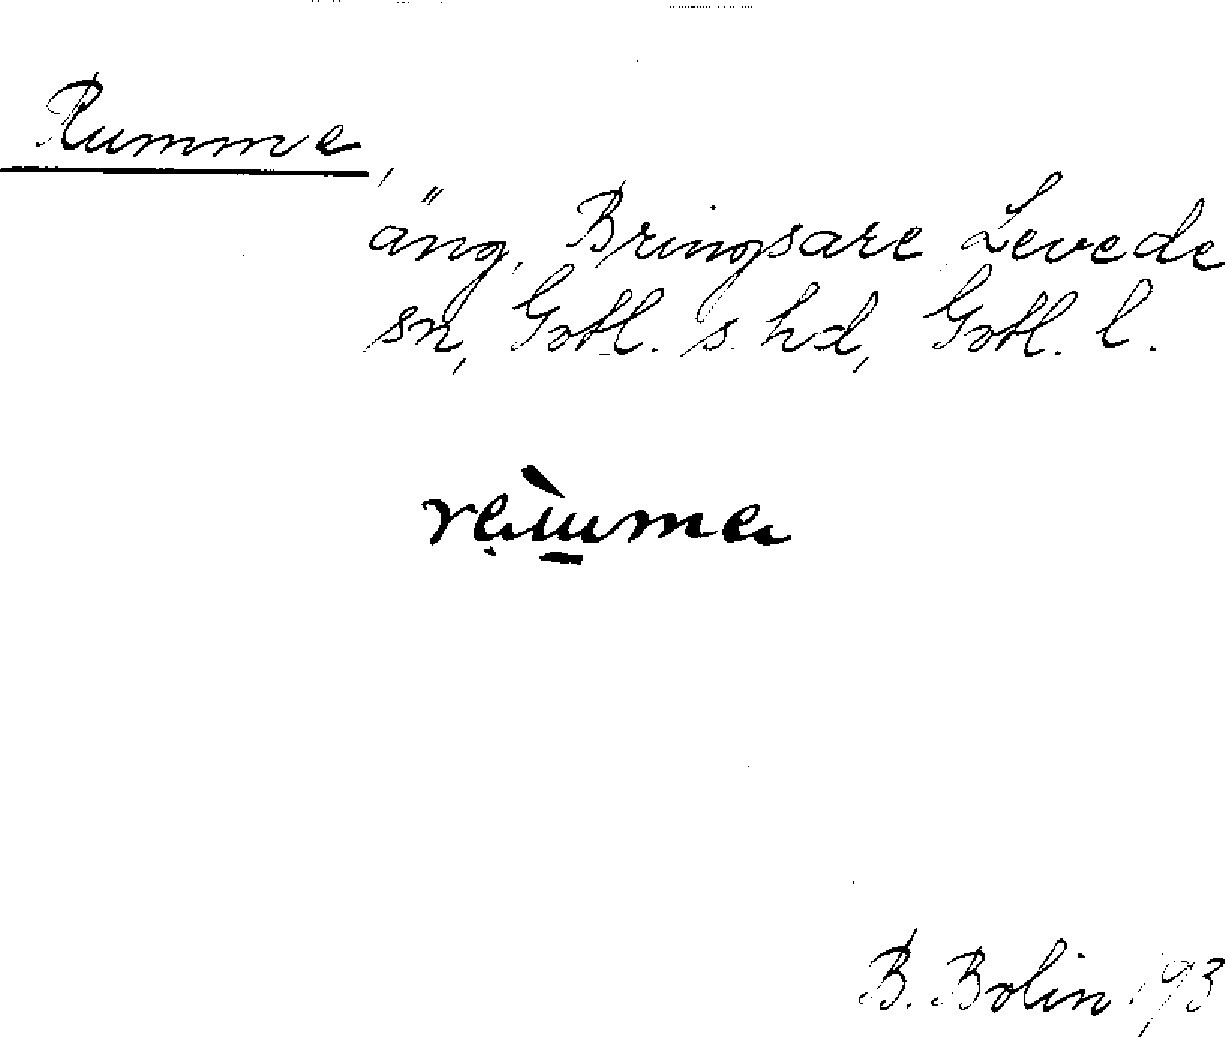 Rumme,
äng, Bringsare Levede
sn, Gotl. s. hd, Gotl. l.
B. Bolin 193